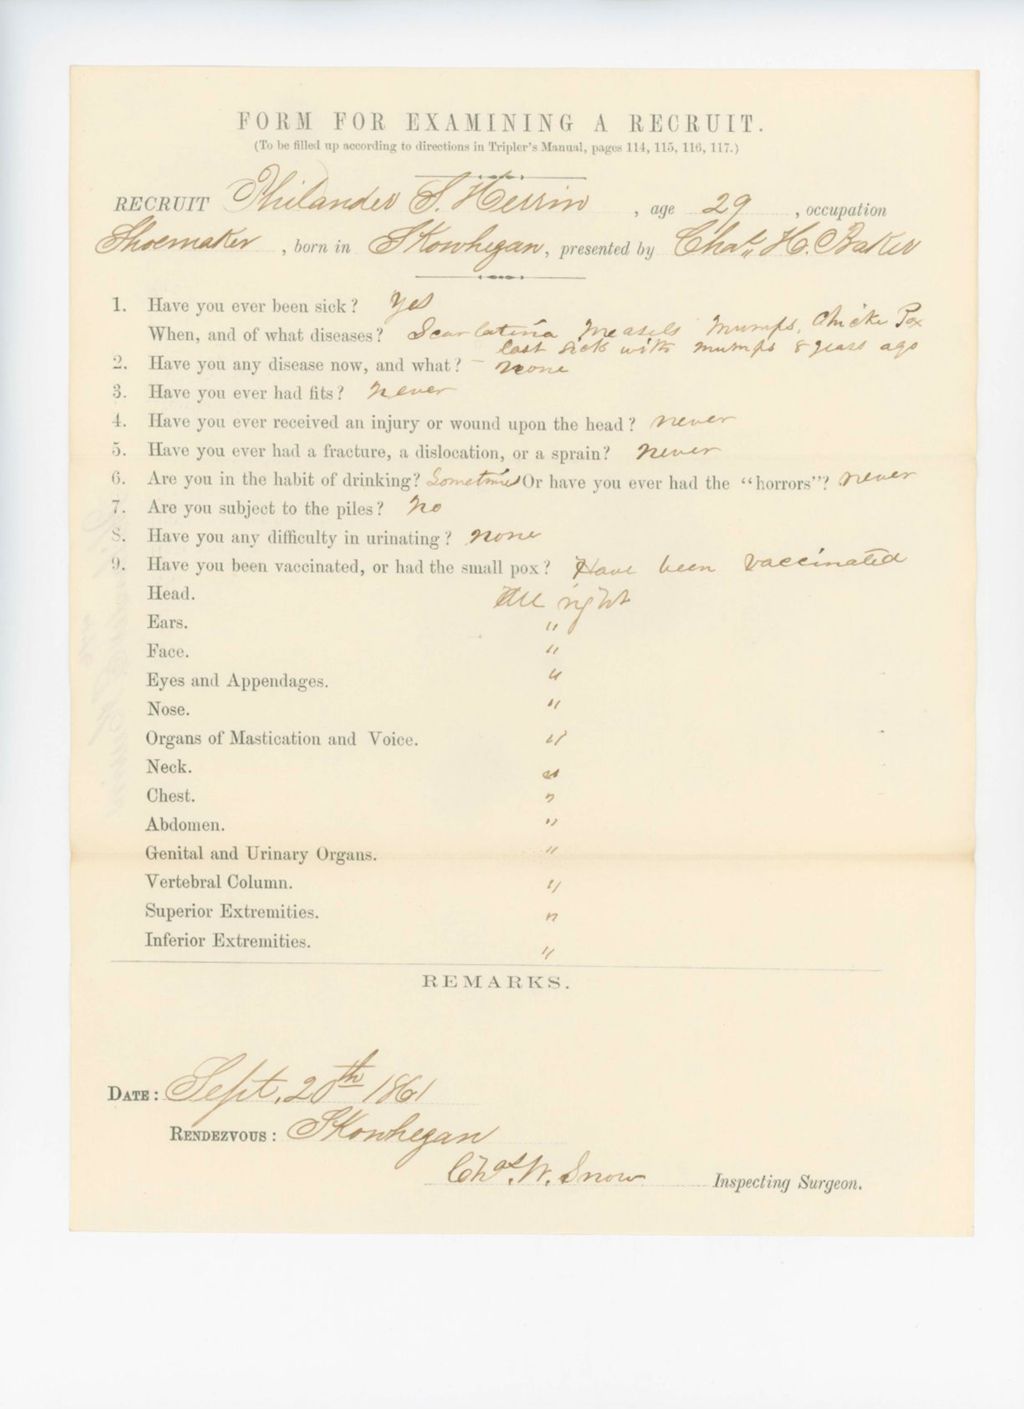 FORM FOR EXAMINING A RECRUIT.
(To be filled up according to directions in Tripler's Manual, pages 114, 115, 116, 117.)
RECRUIT Philander S. Herrin , age 29 , occupation
Shoemaker , born in Skowhegan, presented by Chas. H. Baker
1. Have you ever been sick? Yes
When, and of what diseases? Scarlatina Measels Mumps, Chicke Pox
last sick with mumps 8 years ago
2. Have you any disease now, and what? - none
3. Have you ever had fits? never
4. Have you ever received an injury or wound upon the head? never
5. Have you ever had a fracture, a dislocation, or a sprain? never
6. Are you in the habit of drinking? Sometimes Or have you ever had the "horrors"? never
7. Are you subject to the piles? No
8. Have you any difficulty in urinating? none
9. Have you been vaccinated, or had the small pox? Have been vaccinated
Head. All right
Ears. "
Face. "
Eyes and Appendages. "
Nose. "
Organs of Mastication and Voice. "
Neck. "
Chest. "
Abdomen. "
Genital and Urinary Organs. "
Vertebral Column. "
Superior Extremities. "
Inferior Extremities. "
REMARKS.
DATE: Sept. 20th 1861
RENDEZVOUS: Skowhegan
Chas. W. Snow Inspecting Surgeon.